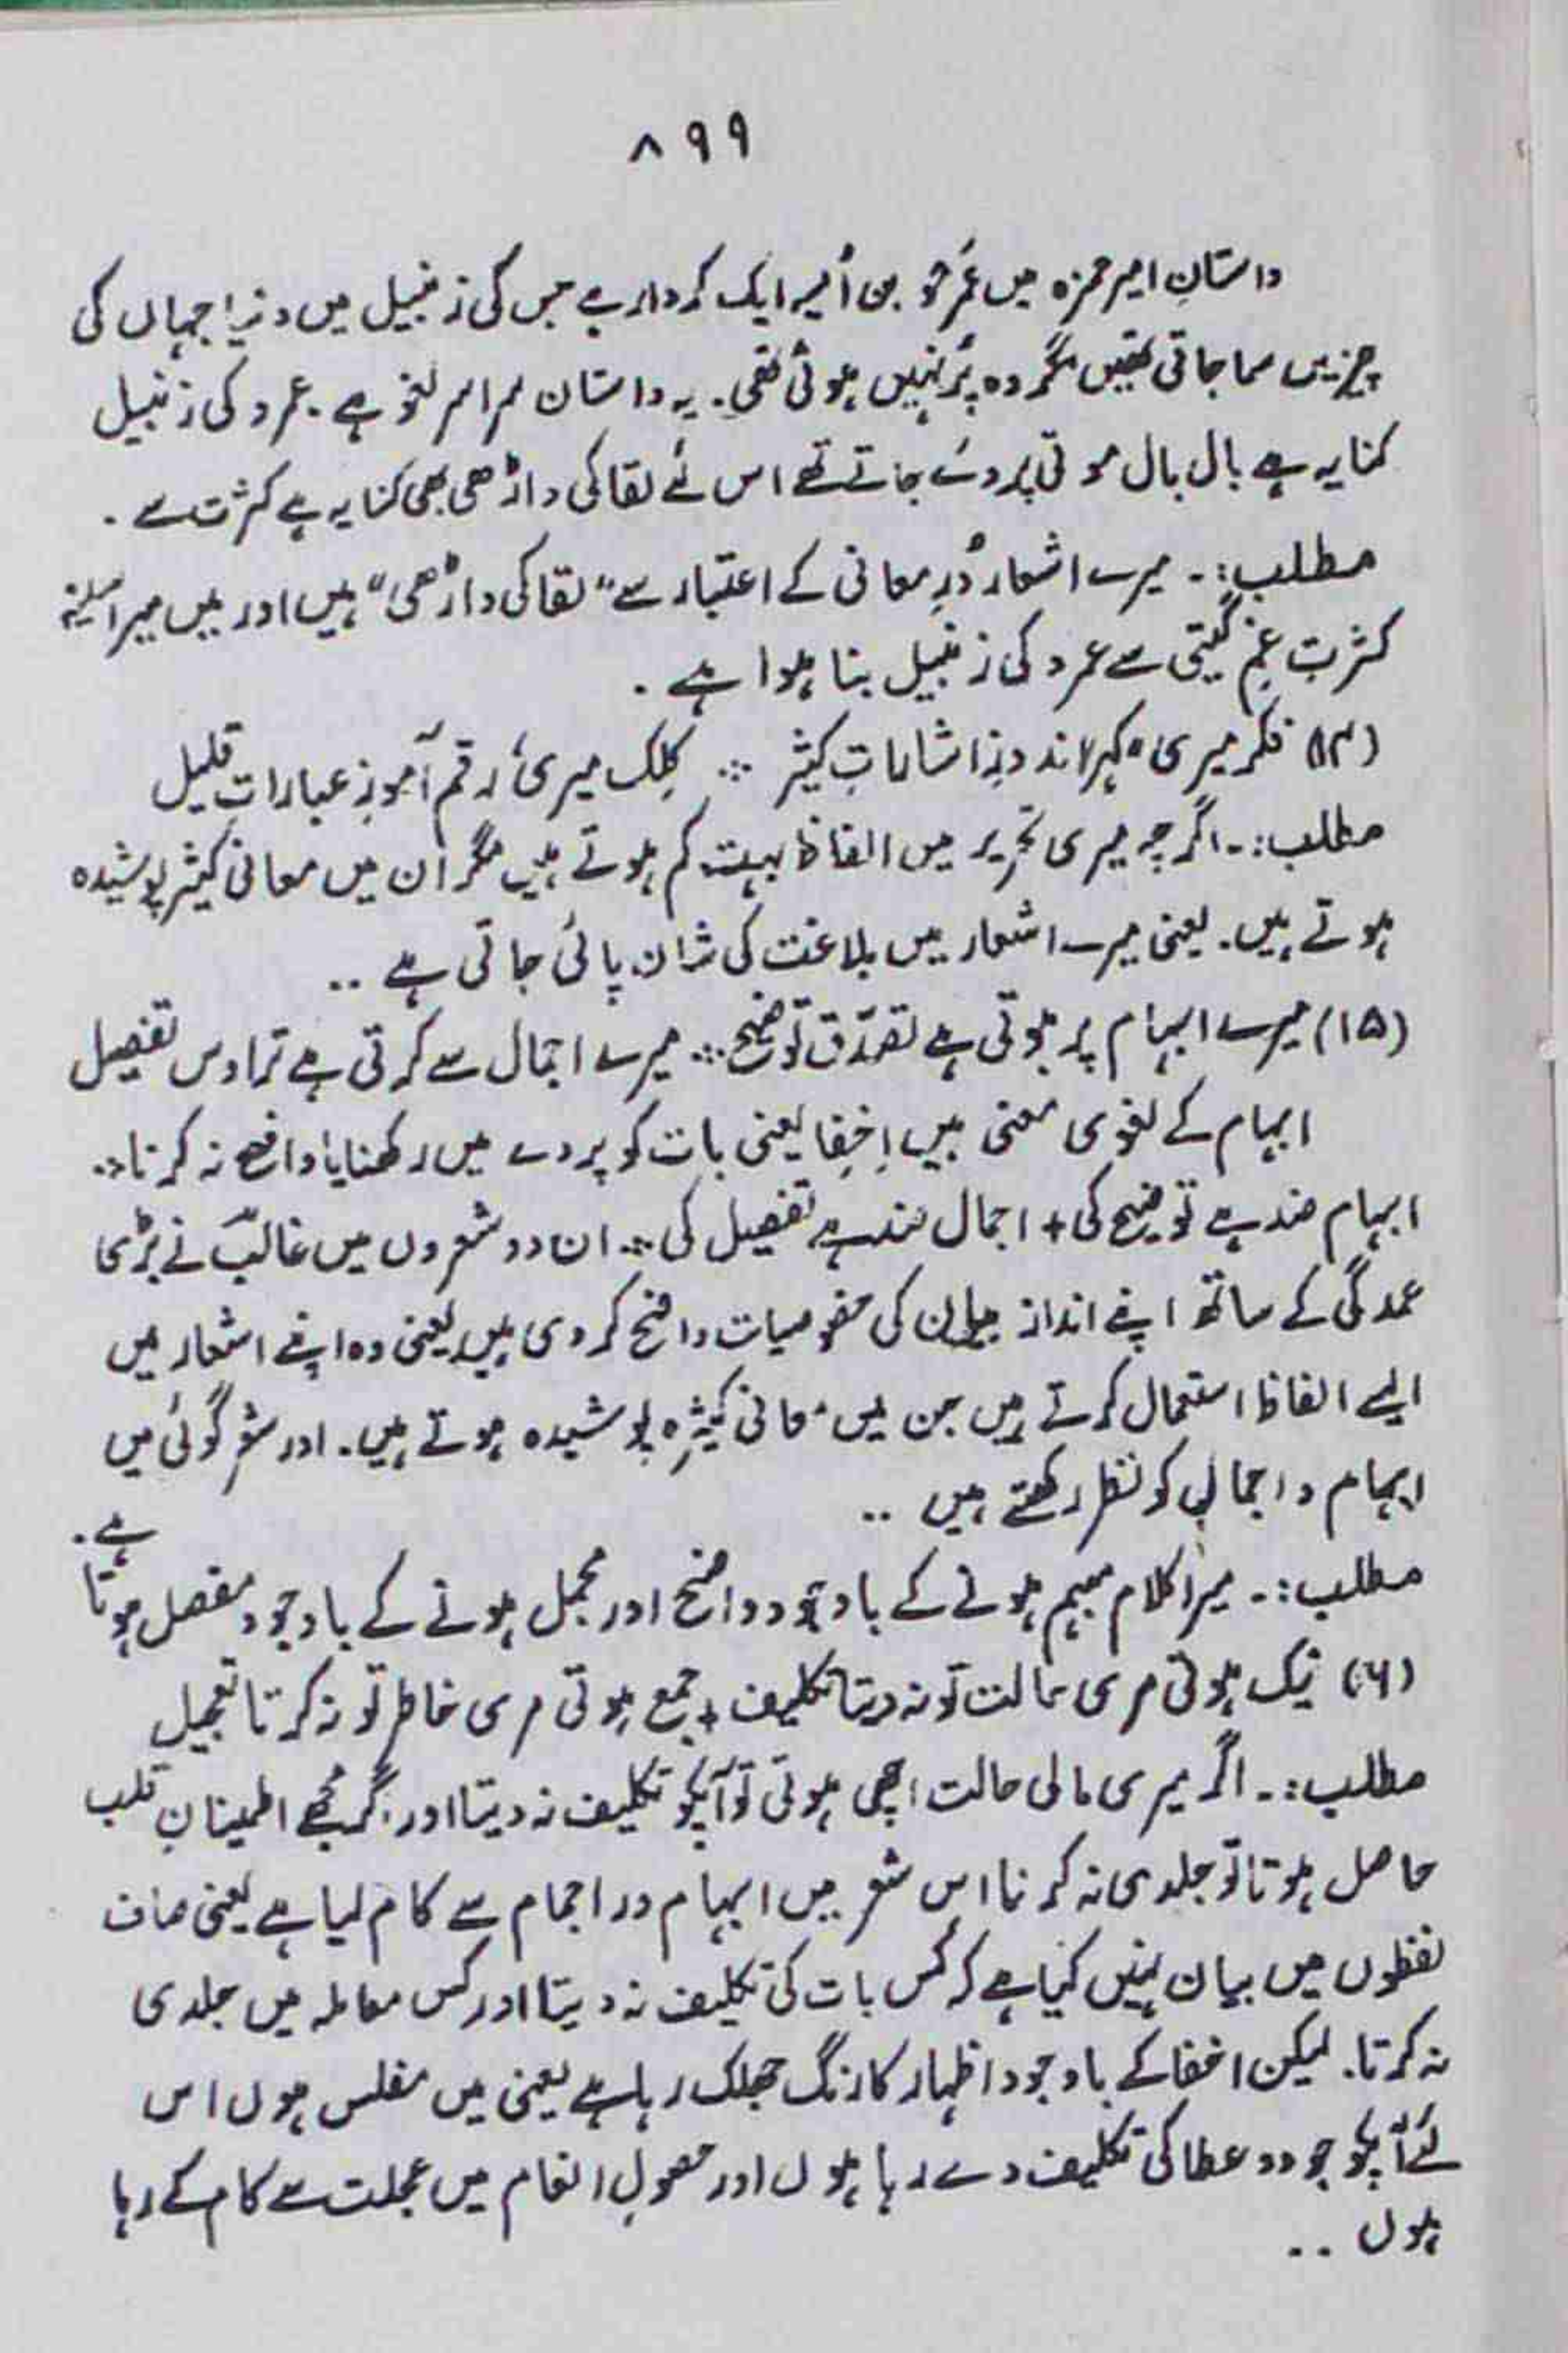 ۸۹۹
داستانِ امیر حمزہ میں عمرو بن اُمیہ ایک کردار ہے جس کی زنبیل میں دنیا جہاں کی
چیزیں سما جاتی تھیں مگر وہ پُر نہیں ہوتی تھی۔ یہ داستان سراسر لغو ہے۔ عمرو کی زنبیل
کنایہ ہے بال بال موتی پروئے جاتے تھے اس لئے لقا کی داڑھی بھی کنایہ ہے کثرت سے۔
مطلب:۔ میرے اشعار دُرِ معانی کے اعتبار سے "لقا کی داڑھی" ہیں اور میں میرا سینہ
کثرتِ غمِ گیتی سے عمرو کی زنبیل بنا ہوا ہے۔
(۱۴) فکر میری گہر اندوزِ اشاراتِ کثیر ∴ کِلک میری رقم آموزِ عباراتِ قلیل
مطلب:۔ اگرچہ میری تحریر میں الفاظ بہت کم ہوتے ہیں مگر ان میں معانی کثیر پوشیدہ
ہوتے ہیں۔ یعنی میرے اشعار میں بلاغت کی شان پائی جاتی ہے ۔۔
(۱۵) میرے ابہام پر ہوتی ہے تصدّق توضیح ∴ میرے اجمال سے کرتی ہے تراوش تفصیل
ابہام کے لغوی معنی ہیں اِخفِا یعنی بات کو پردے میں رکھنا یا واضح نہ کرنا ∴
ابہام ضد ہے توضیح کی + اجمال ضد ہے تفصیل کی ∴ ان دو شعروں میں غالبؔ نے بڑی
عمدگی کے ساتھ اپنے انداز بیان کی خصوصیات واضح کر دی ہیں یعنی وہ اپنے اشعار میں
ایسے الفاظ استعمال کرتے ہیں جن میں معانی کثیرہ پوشیدہ ہوتے ہیں۔ اور شعر گوئی میں
ابہام و اجمالی کو نظر رکھتے ہیں ۔۔
مطلب:۔ میرا کلام مبہم ہونے کے باوجود واضح اور مجمل ہونے کے باوجود مفصل ہوتا ہے۔
(۱۶) نیک ہوتی مری حالت تو نہ دیتا تکلیف + جمع ہوتی مری خاطر تو نہ کرتا تعجیل
مطلب:۔ اگر میری مالی حالت اچھی ہوتی تو آپکو تکلیف نہ دیتا اور اگر مجھے اطمینانِ قلب
حاصل ہوتا تو جلدی نہ کرتا اس شعر میں ابہام در اجمام سے کام لیا ہے یعنی صاف
لفظوں میں بیان نہیں کیا ہے کہ کس بات کی تکلیف نہ دیتا اور کس معاملہ میں جلدی
نہ کرتا۔ لیکن اخفا کے باوجود اظہار کا رنگ جھلک رہا ہے یعنی میں مفلس ہوں اس
لئے آپکو جود و عطا کی تکلیف دے رہا ہوں اور حصولِ انعام میں عجلت سے کام لے رہا
ہوں ۔۔